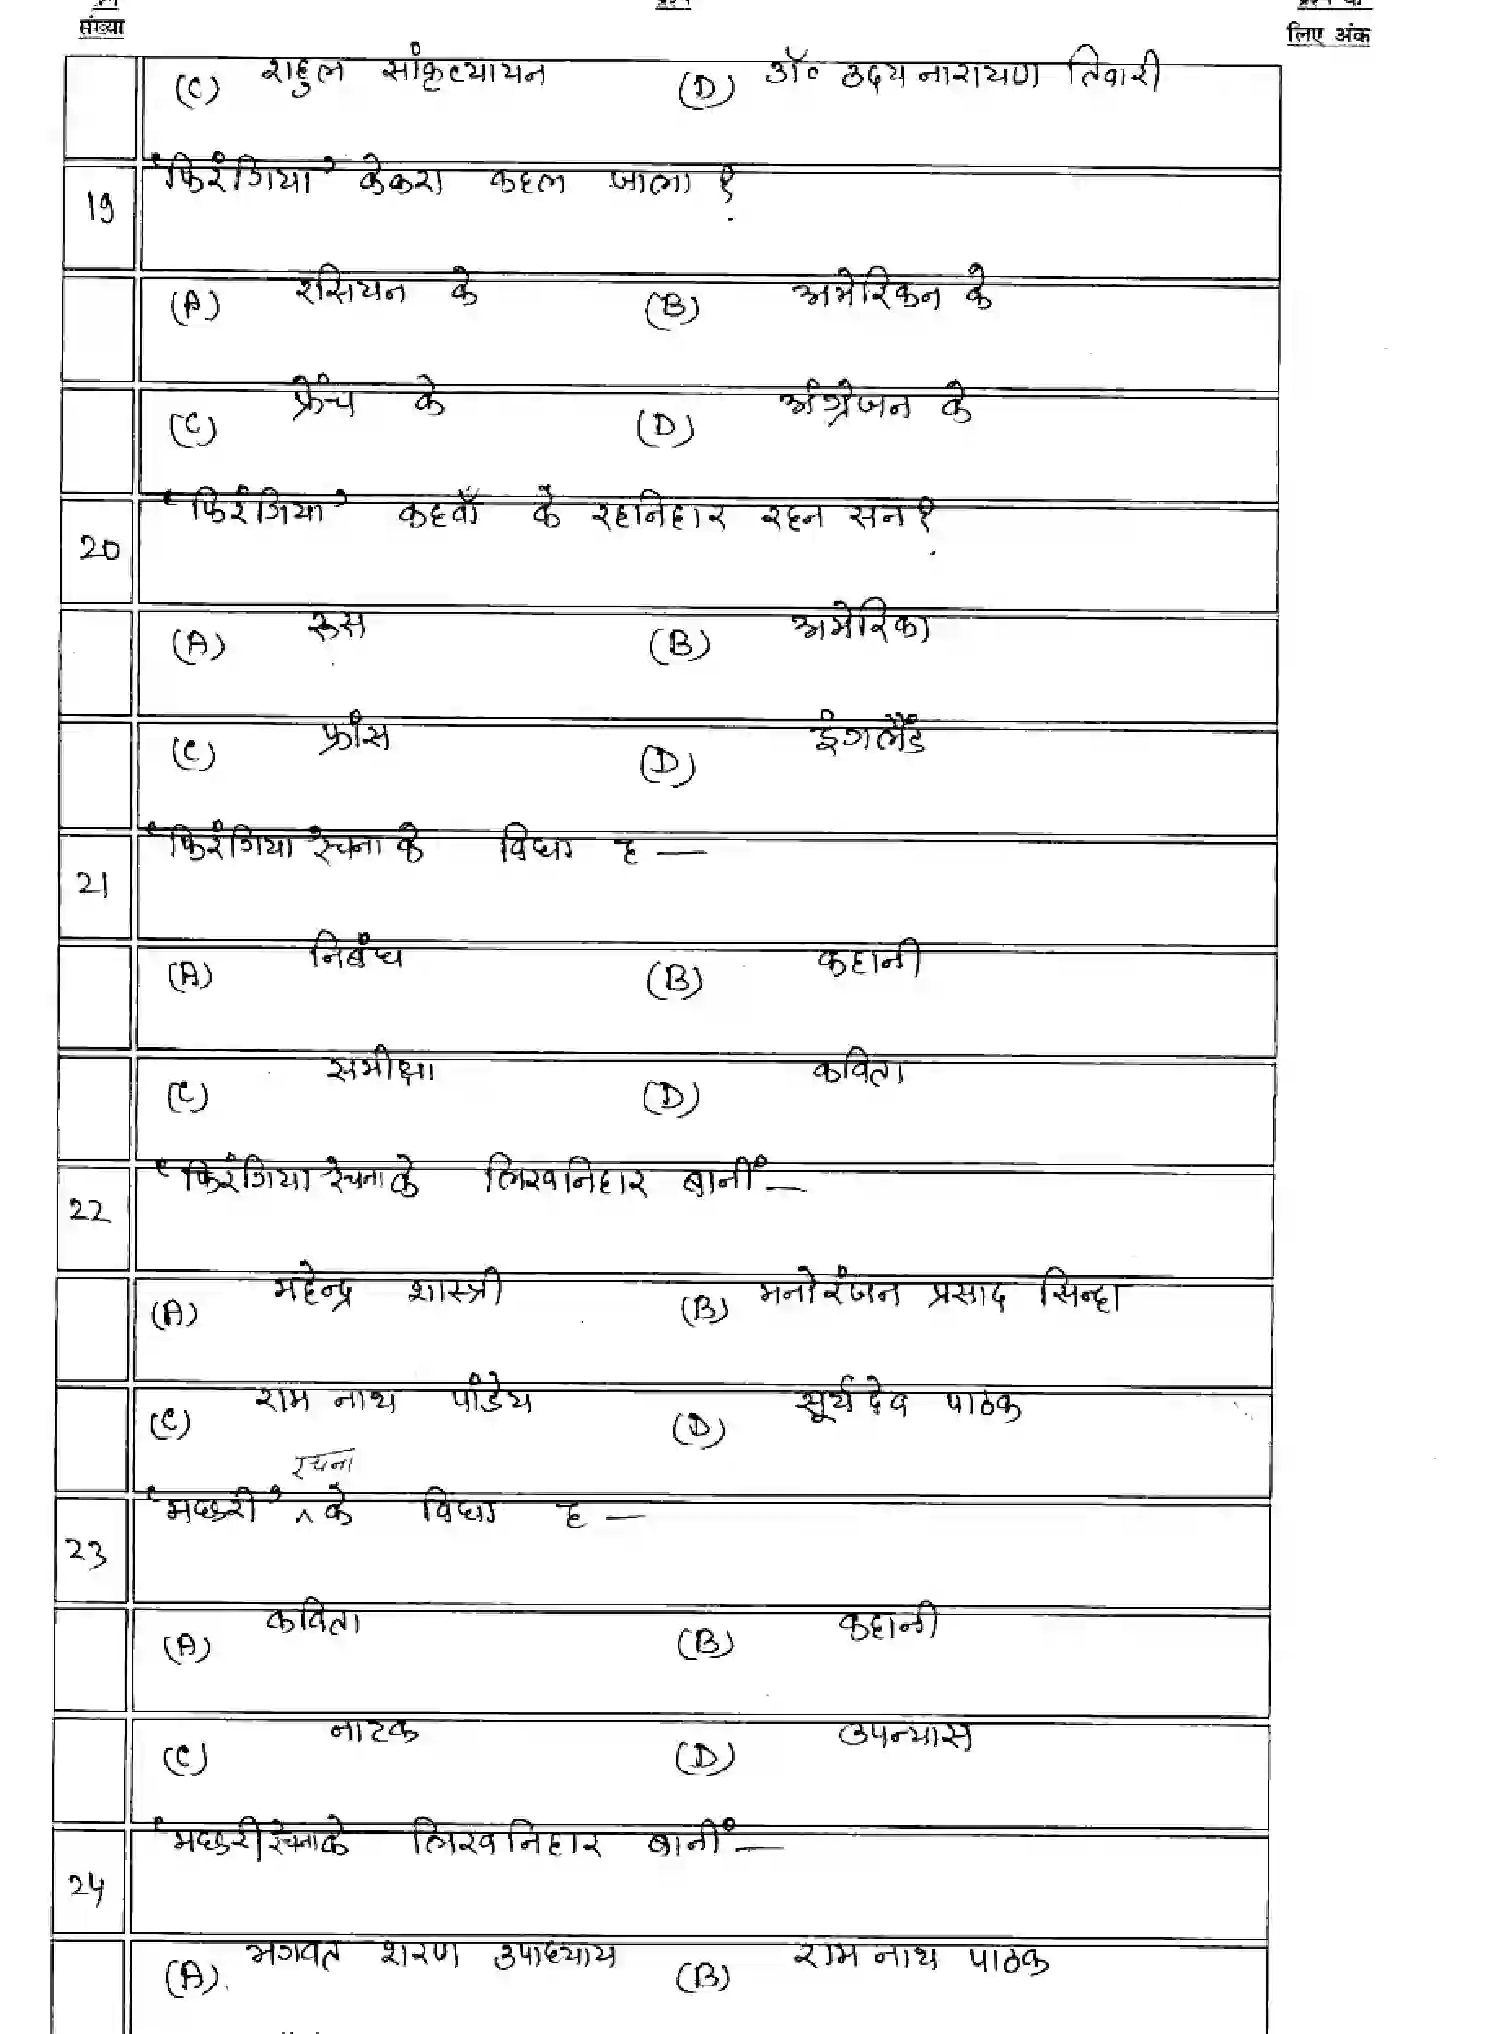 संख्या
लिए अंक
(C) राहुल सांकृत्यायन (D) डॉ० उदय नारायण तिवारी
19 'फिरंगिया' केकरा कहल जाला ?
(A) रसियन के (B) अमेरिकन के
(C) फ्रेंच के (D) अंग्रेजन के
20 'फिरंगिया' कहवाँ के रहनिहार रहन सन ?
(A) रूस (B) अमेरिका
(C) फ्रांस (D) इंगलैंड
21 'फिरंगिया रचना के विधा ह —
(A) निबंध (B) कहानी
(C) समीक्षा (D) कविता
22 'फिरंगिया रचना के लिखनिहार बानीं —
(A) महेन्द्र शास्त्री (B) मनोरंजन प्रसाद सिन्हा
(C) राम नाथ पांडेय (D) सूर्य देव पाठक
रचना
23 'मछरी' ^ के विधा ह —
(A) कविता (B) कहानी
(C) नाटक (D) उपन्यास
24 'मछरी रचना के लिखनिहार बानीं —
(A). भगवत शरण उपाध्याय (B) राम नाथ पाठक